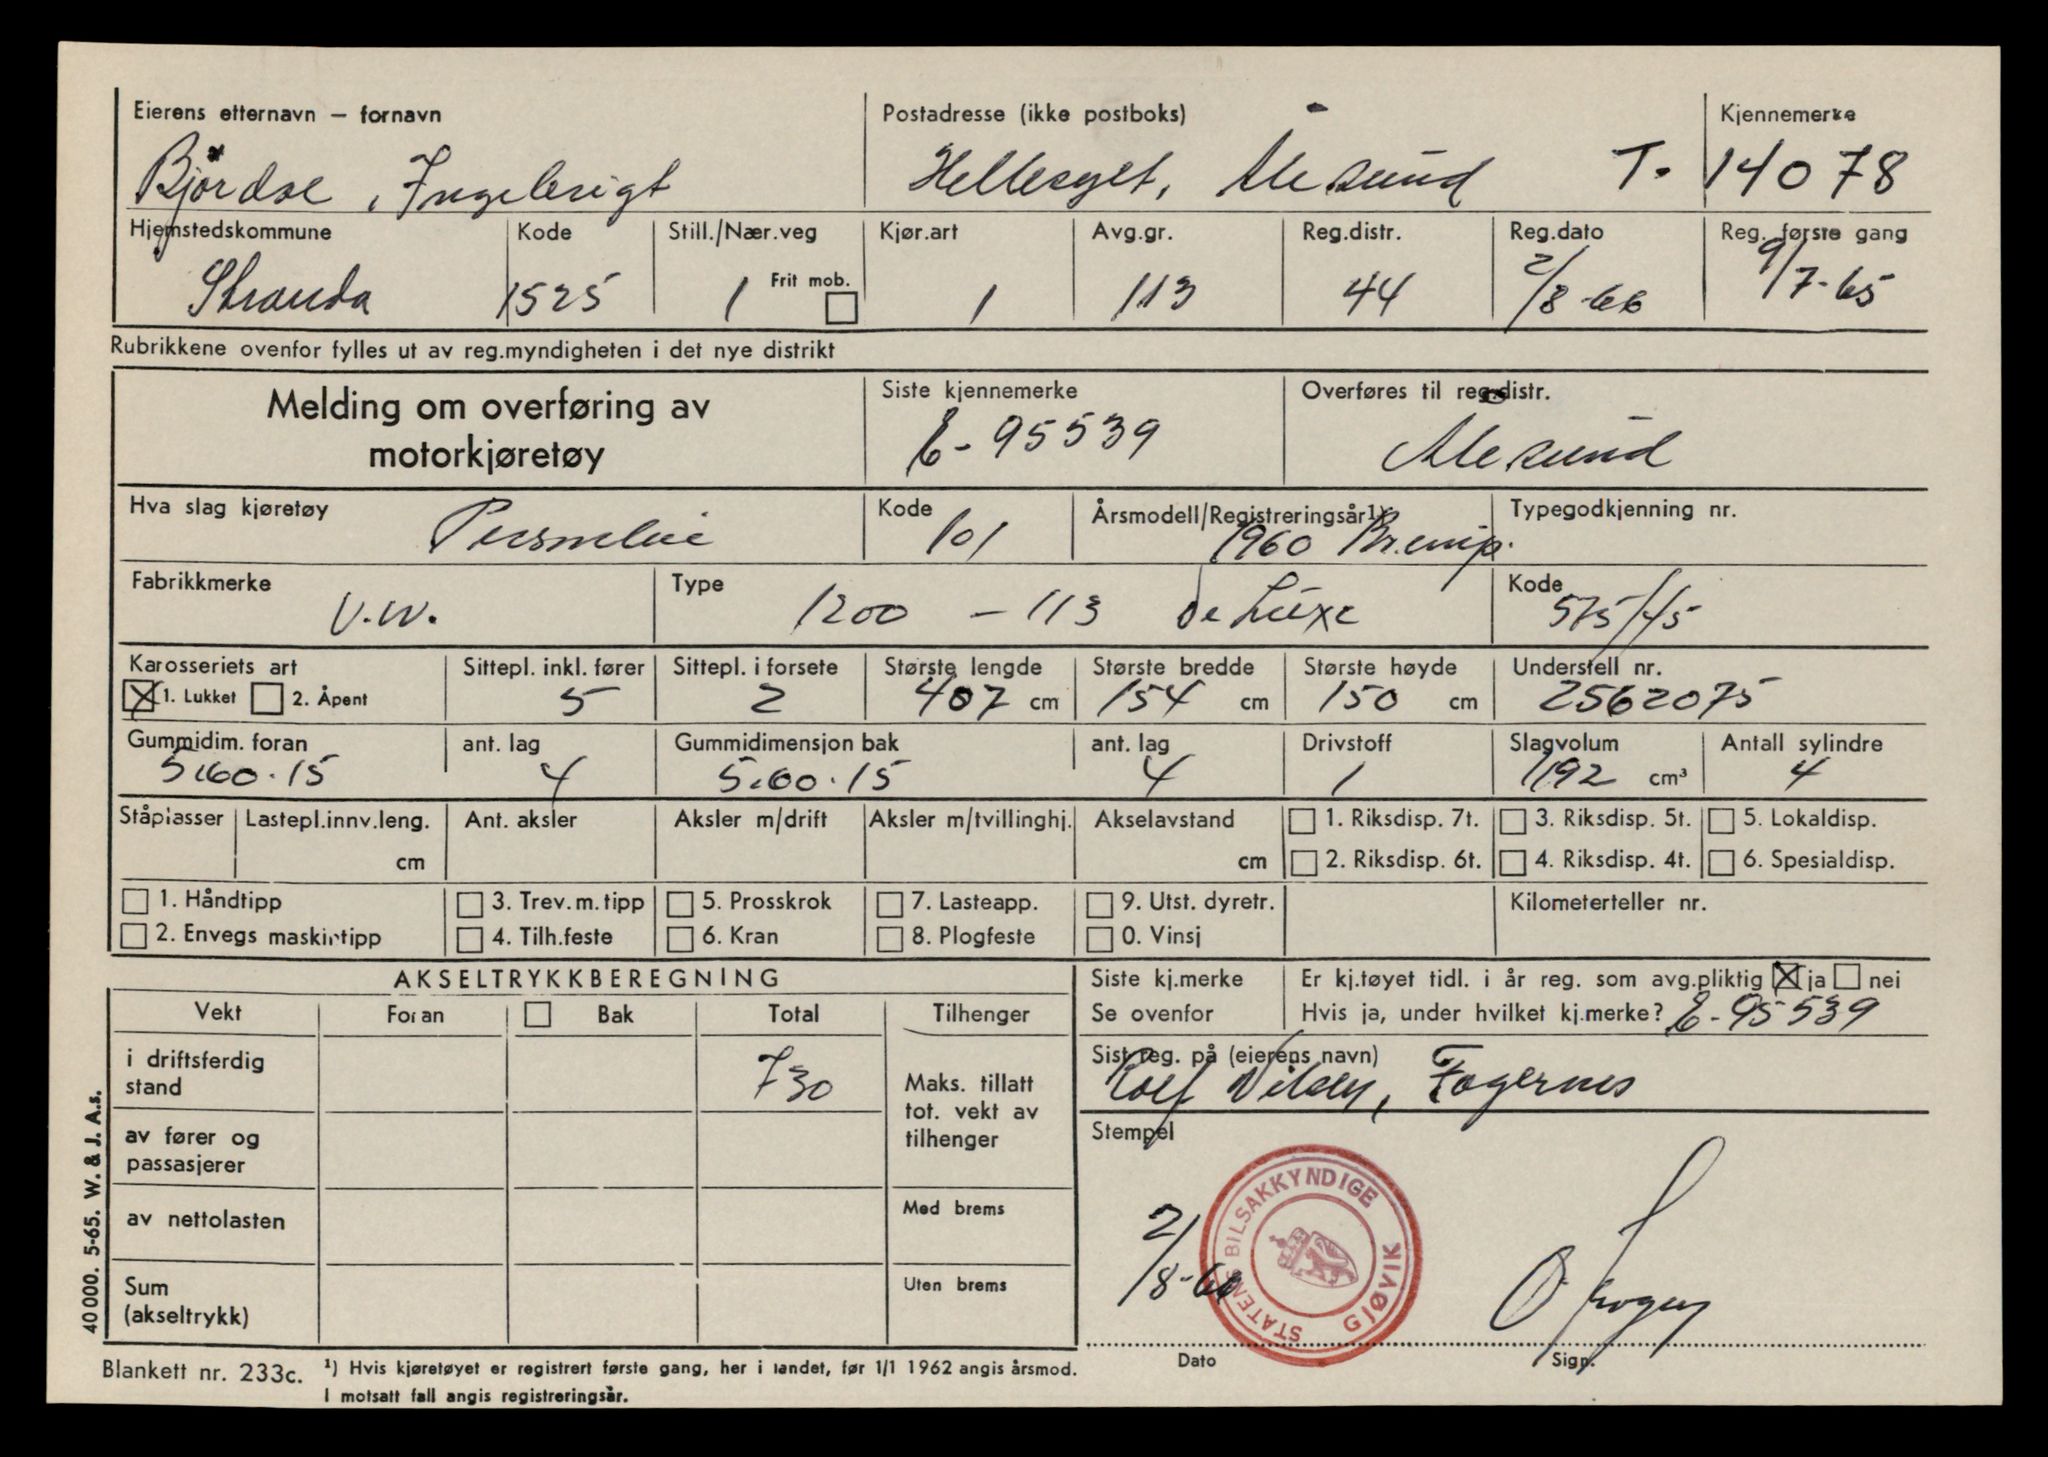 Eierens etternavn — fornavn Postadresse (ikke postboks) Kjennemerke
Bjørdal, Ingebrigt Hellesylt, Ålesund T. 14078
Hjemstedskommune Kode Still./Nær.veg Kjør.art Avg.gr. Reg.distr. Reg.dato Reg. første gang
Stranda 1525 1 Frit mob. 1 113 44 2/8-66 9/7-65
Rubrikkene ovenfor fylles ut av reg.myndigheten i det nye distrikt
Melding om overføring av
motorkjøretøy
Siste kjennemerke Overføres til reg.distr.
E-95539 Ålesund
Hva slag kjøretøy Kode Årsmodell/Registreringsår1) Typegodkjenning nr.
Personbil 101 1960
Fabrikkmerke Type Kode
V.W. 1200 - 113 de Luxe 575/45
Karosseriets art Sittepl. inkl. fører Sittepl. i forsete Største lengde Største bredde Største høyde Understell nr.
1. Lukket 2. Åpent 5 2 407 cm 154 cm 150 cm 2562075
Gummidim. foran ant. lag Gummidimensjon bak ant. lag Drivstoff Slagvolum Antall sylindre
5.60.15 4 5.60.15 4 1 1192 cm³ 4
Ståplasser Lastepl.innv.leng. Ant. aksler Aksler m/drift Aksler m/tvillinghj. Akselavstand 1. Riksdisp. 7t. 3. Riksdisp. 5t. 5. Lokaldisp.
cm cm 2. Riksdisp. 6t. 4. Riksdisp. 4t. 6. Spesialdisp.
1. Håndtipp 3. Trev.m.tipp 5. Prosskrok 7. Lasteapp. 9. Utst. dyretr. Kilometerteller nr.
2. Envegs maskintipp 4. Tilh.feste 6. Kran 8. Plogfeste 0. Vinsj
AKSELTRYKKBEREGNING
Siste kj.merke Er kj.tøyet tidl. i år reg. som avg.pliktig ja nei
Se ovenfor Hvis ja, under hvilket kj.merke? E-95539
Vekt Foran Bak Total Tilhenger
Sist reg. på (eierens navn)
Rolf Nilsen, Fagernes
i driftsferdig
stand 730
Maks. tillatt
tot. vekt av
tilhenger
av fører og
passasjerer
av nettolasten Med brems
Sum
(akseltrykk) Uten brems
Stempel
STATENS BILSAKKYNDIGE
GJØVIK
2/8-66
Dato Sign.
40000. 5-65. W. & J. A.s.
Blankett nr. 233c. ¹) Hvis kjøretøyet er registrert første gang, her i landet, før 1/1 1962 angis årsmod.
I motsatt fall angis registreringsår.